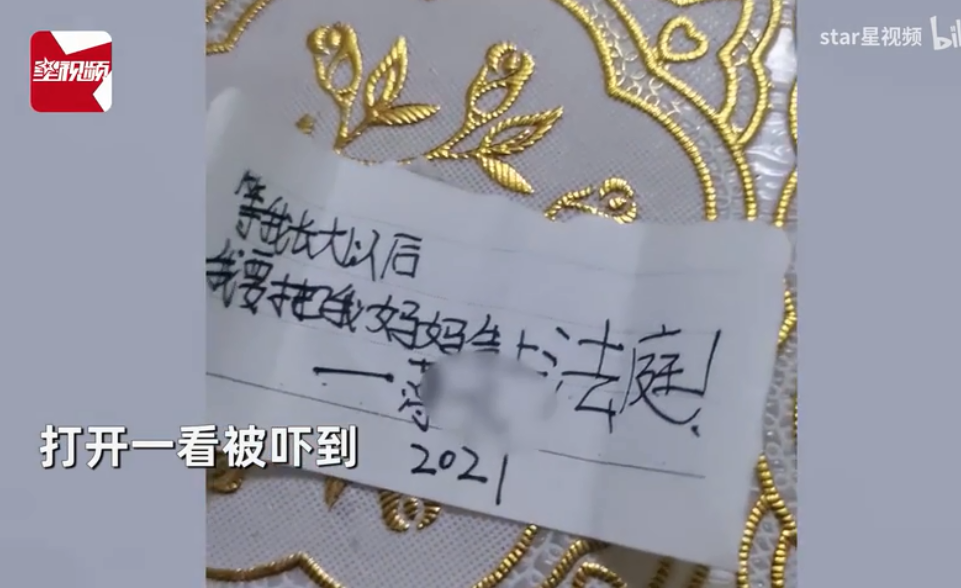 星视频
star星视频
bil
等我长大以后
我要把我妈妈告上法庭!
2021
打开一看被吓到